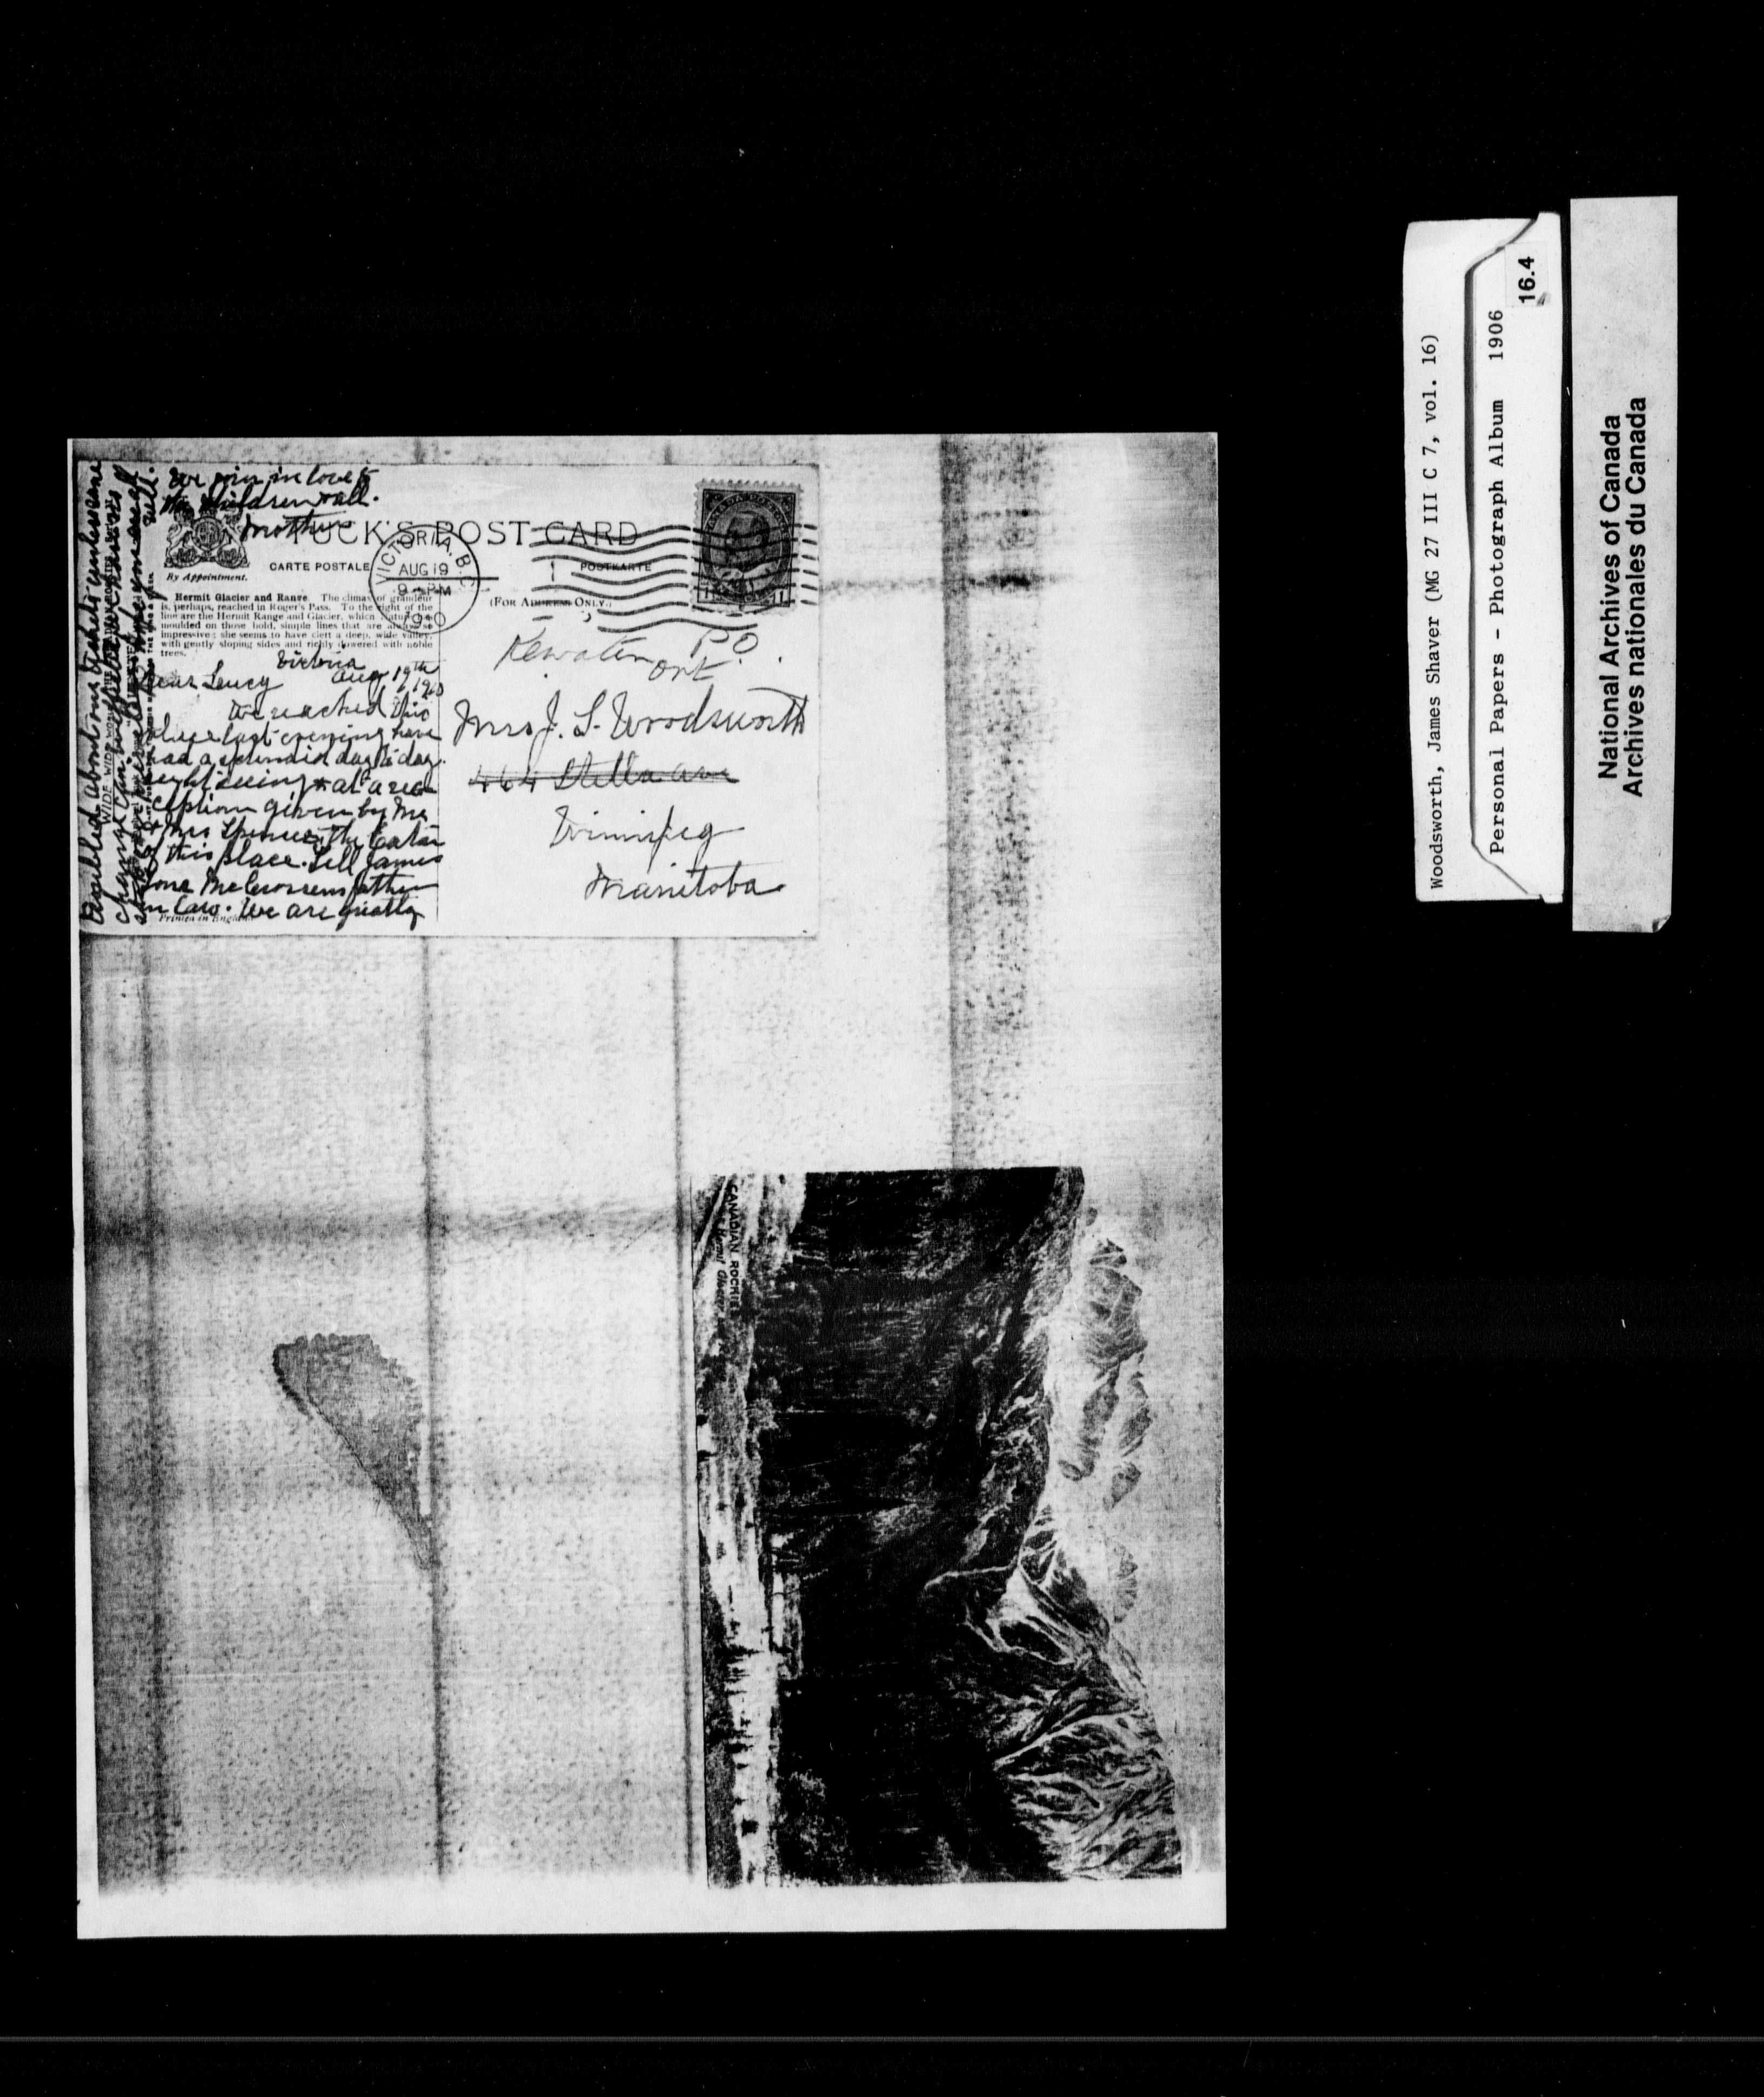 We join in love to
the children & all.
Mother
TUCK'S POST CARD
CARTE POSTALE
POSTKARTE
By Appointment.
(FOR ADDRESS ONLY.)
VICTORIA, B.C.
AUG 19
9 - PM
1910
Hermit Glacier and Range. The climax of grandeur
is, perhaps, reached in Roger's Pass. To the right of the
line are the Hermit Range and Glacier, which Nature has
moulded on those bold, simple lines that are always so
impressive; she seems to have cleft a deep, wide valley,
with gently sloping sides and richly dowered with noble
trees.
Victoria
Aug 19th
1910
Dear Lucy
We reached this
place last evening have
had a splendid day to day
sight seeing & at a re
ception given by Mr
& Mrs Spencer, the Eaton
of this place. Tell James
in Caro. We are greatly
Printed in England
troubled about our tickets
well.
Kewatin P.O.
Ont
Mrs J. S. Woodsworth
464 Stella Ave
Winnipeg
Manitoba
CANADIAN ROCKIES
Hermit Glacier
Woodsworth, James Shaver (MG 27 III C 7, vol. 16)
Personal Papers - Photograph Album 1906
16.4
National Archives of Canada
Archives nationales du Canada